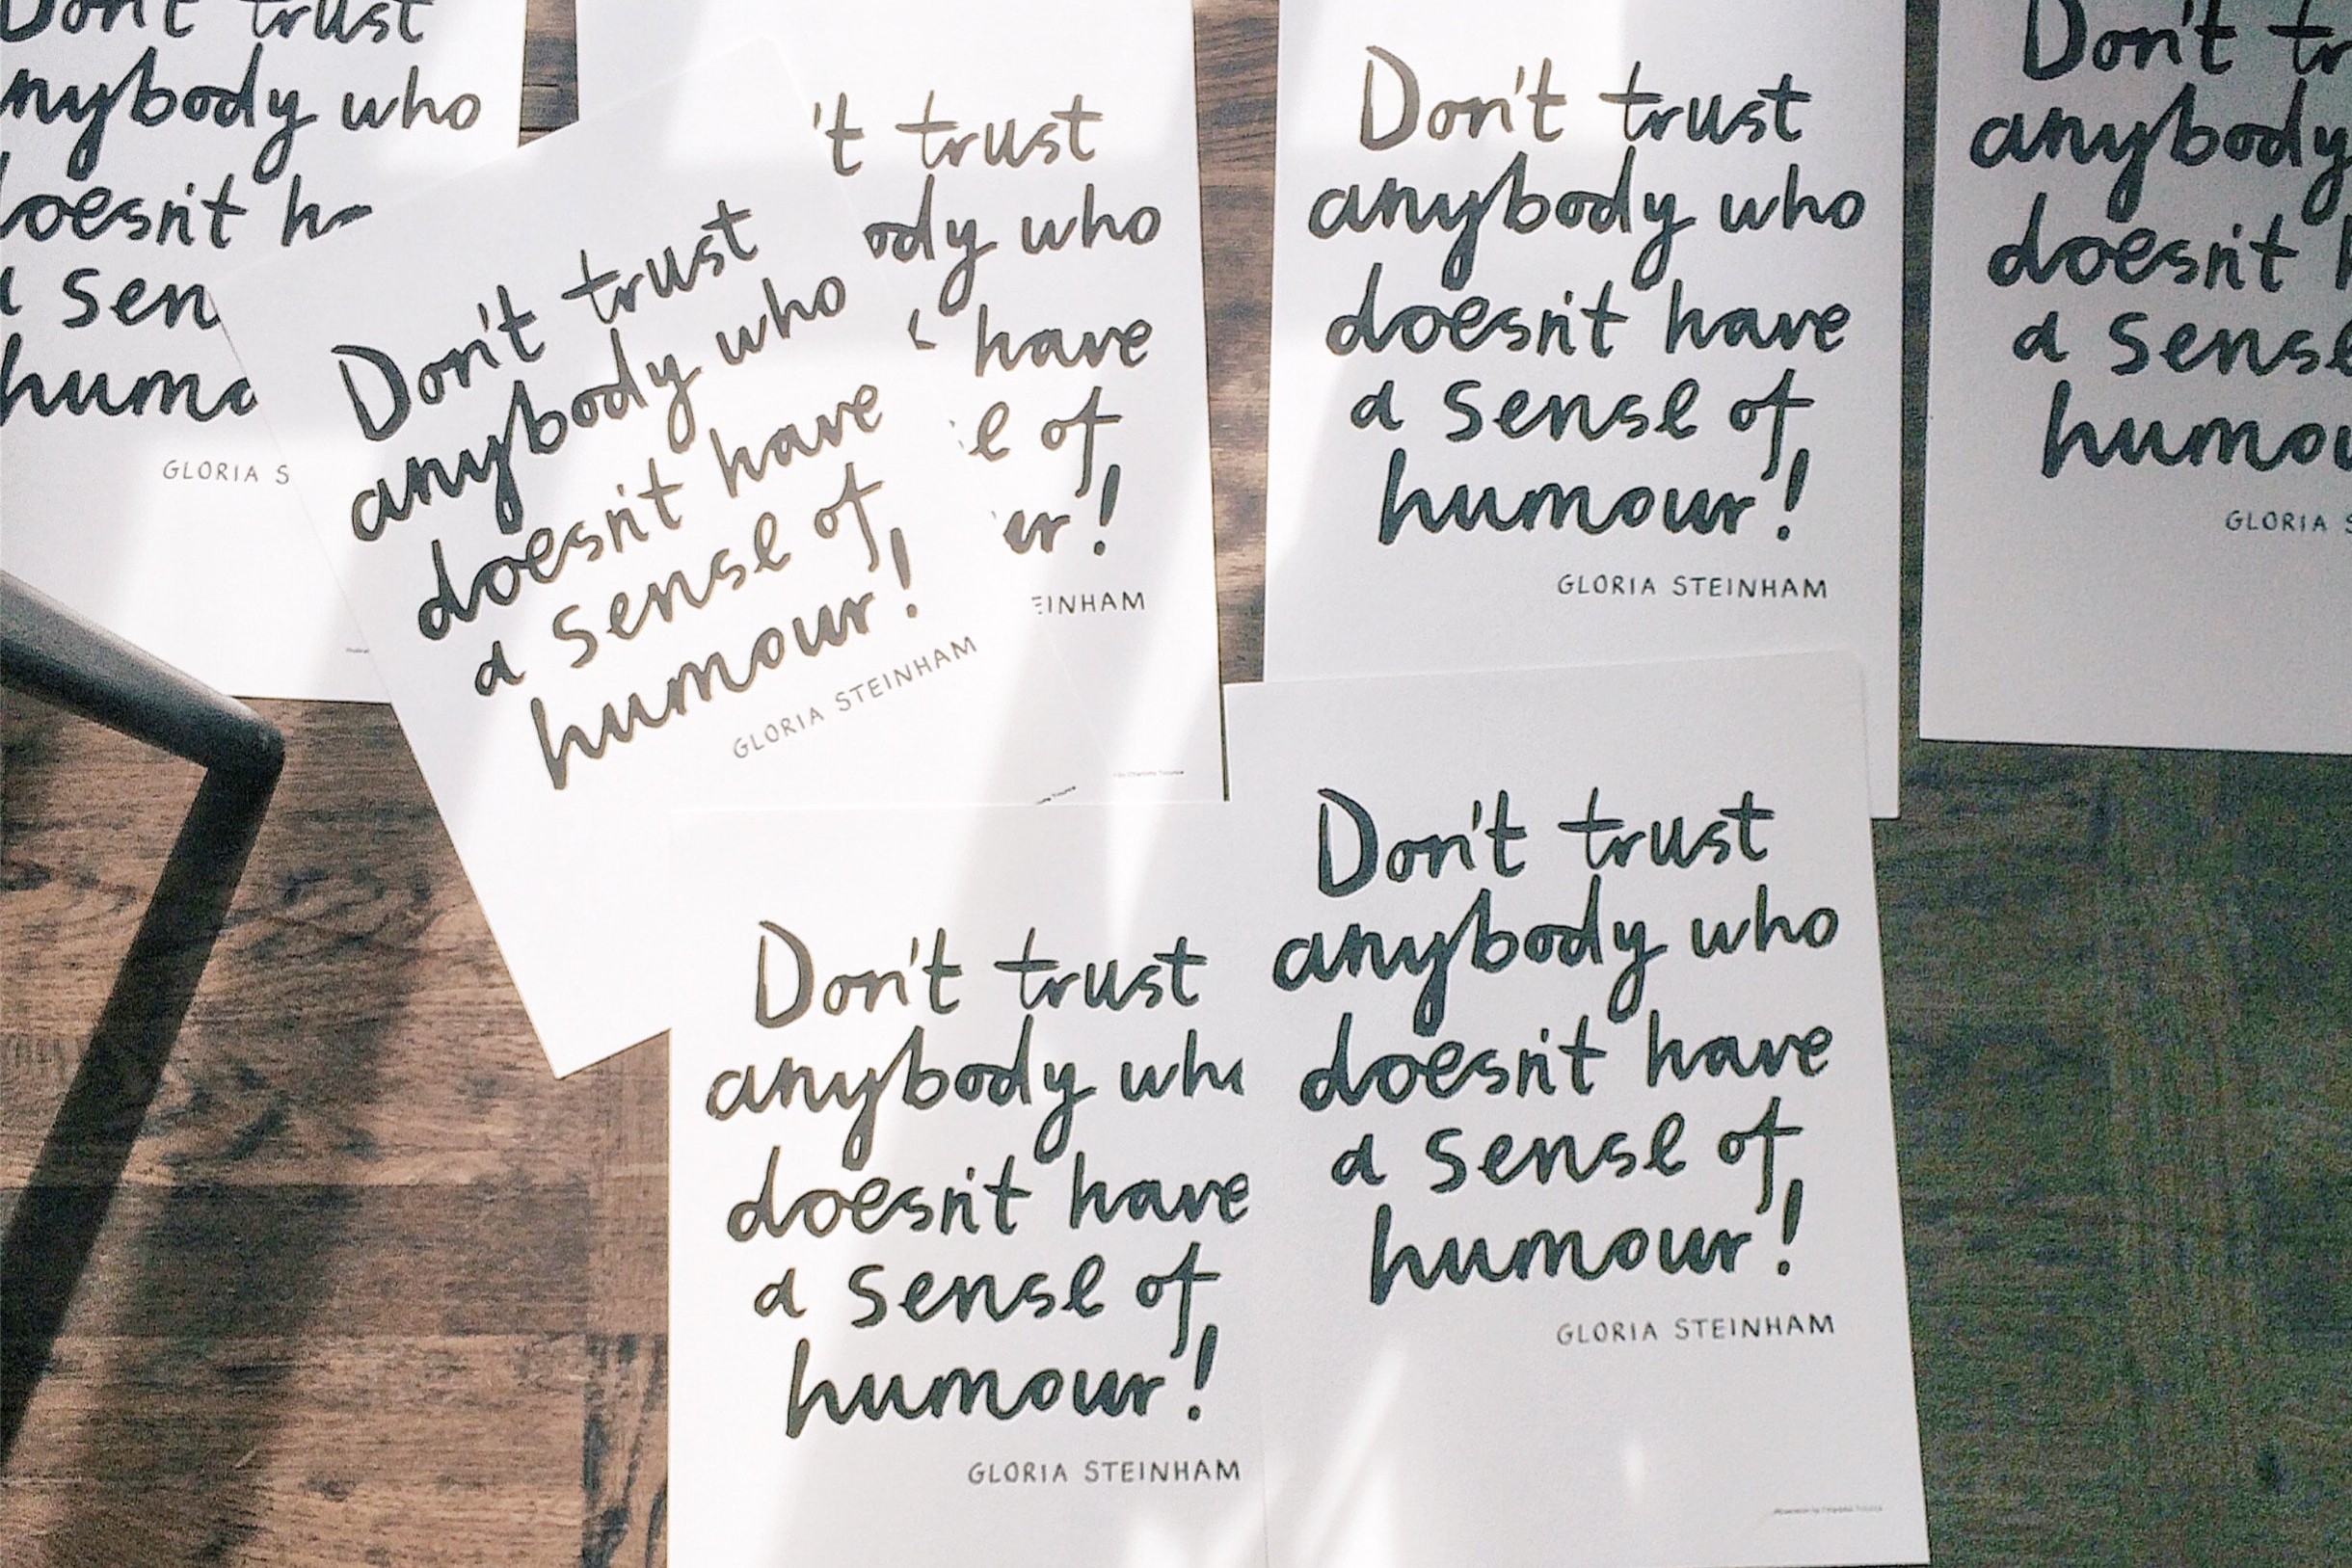 Don't trust
nybody who
oesn't h
a sen
hum
GLORIA S
Don't trust
anybody who
doesn't have
a sense of
humour!
GLORIA STEINHAM
't trust
ody who
have
e of
ur!
EINHAM
Don't trust
anybody who
doesn't have
a sense of
humour!
GLORIA STEINHAM
Don't tr
anybody
doesn't
a sense
humou
GLORIA S
Don't trust
anybody who
doesn't have
a sense of
humour!
GLORIA STEINHAM
Don't trust
anybody who
doesn't have
a sense of
humour!
GLORIA STEINHAM